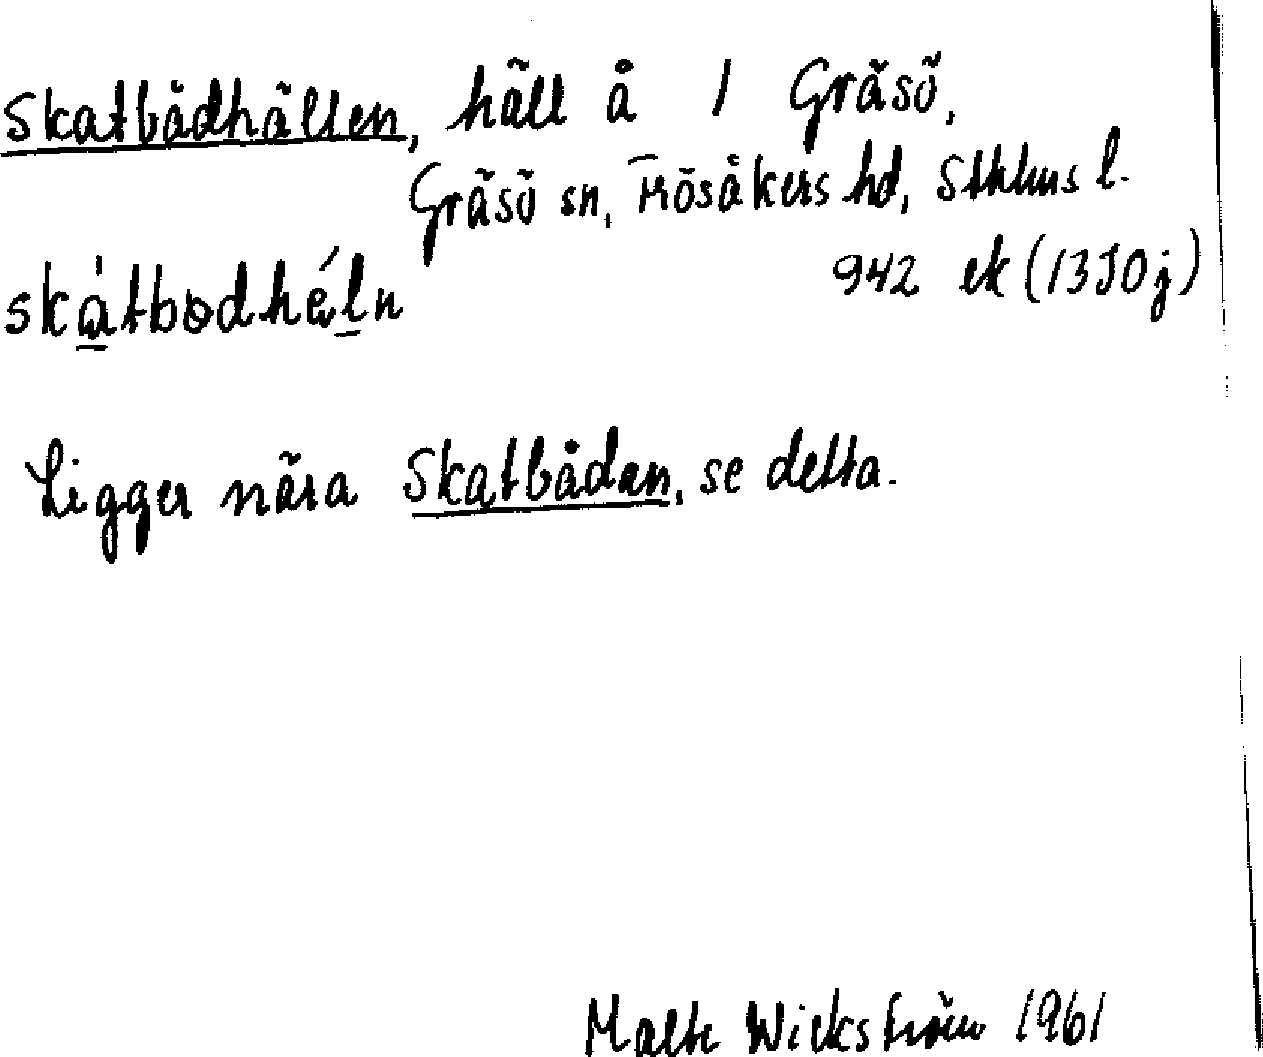 Skatbådhällen, häll å 1 Gräsö,
Gräsö sn, Frösåkers hd, Sthlms l.
skàtbodhéln 942 ek (13J0j)
Ligger nära Skatbådan, se detta.
Malte Wickström 1961